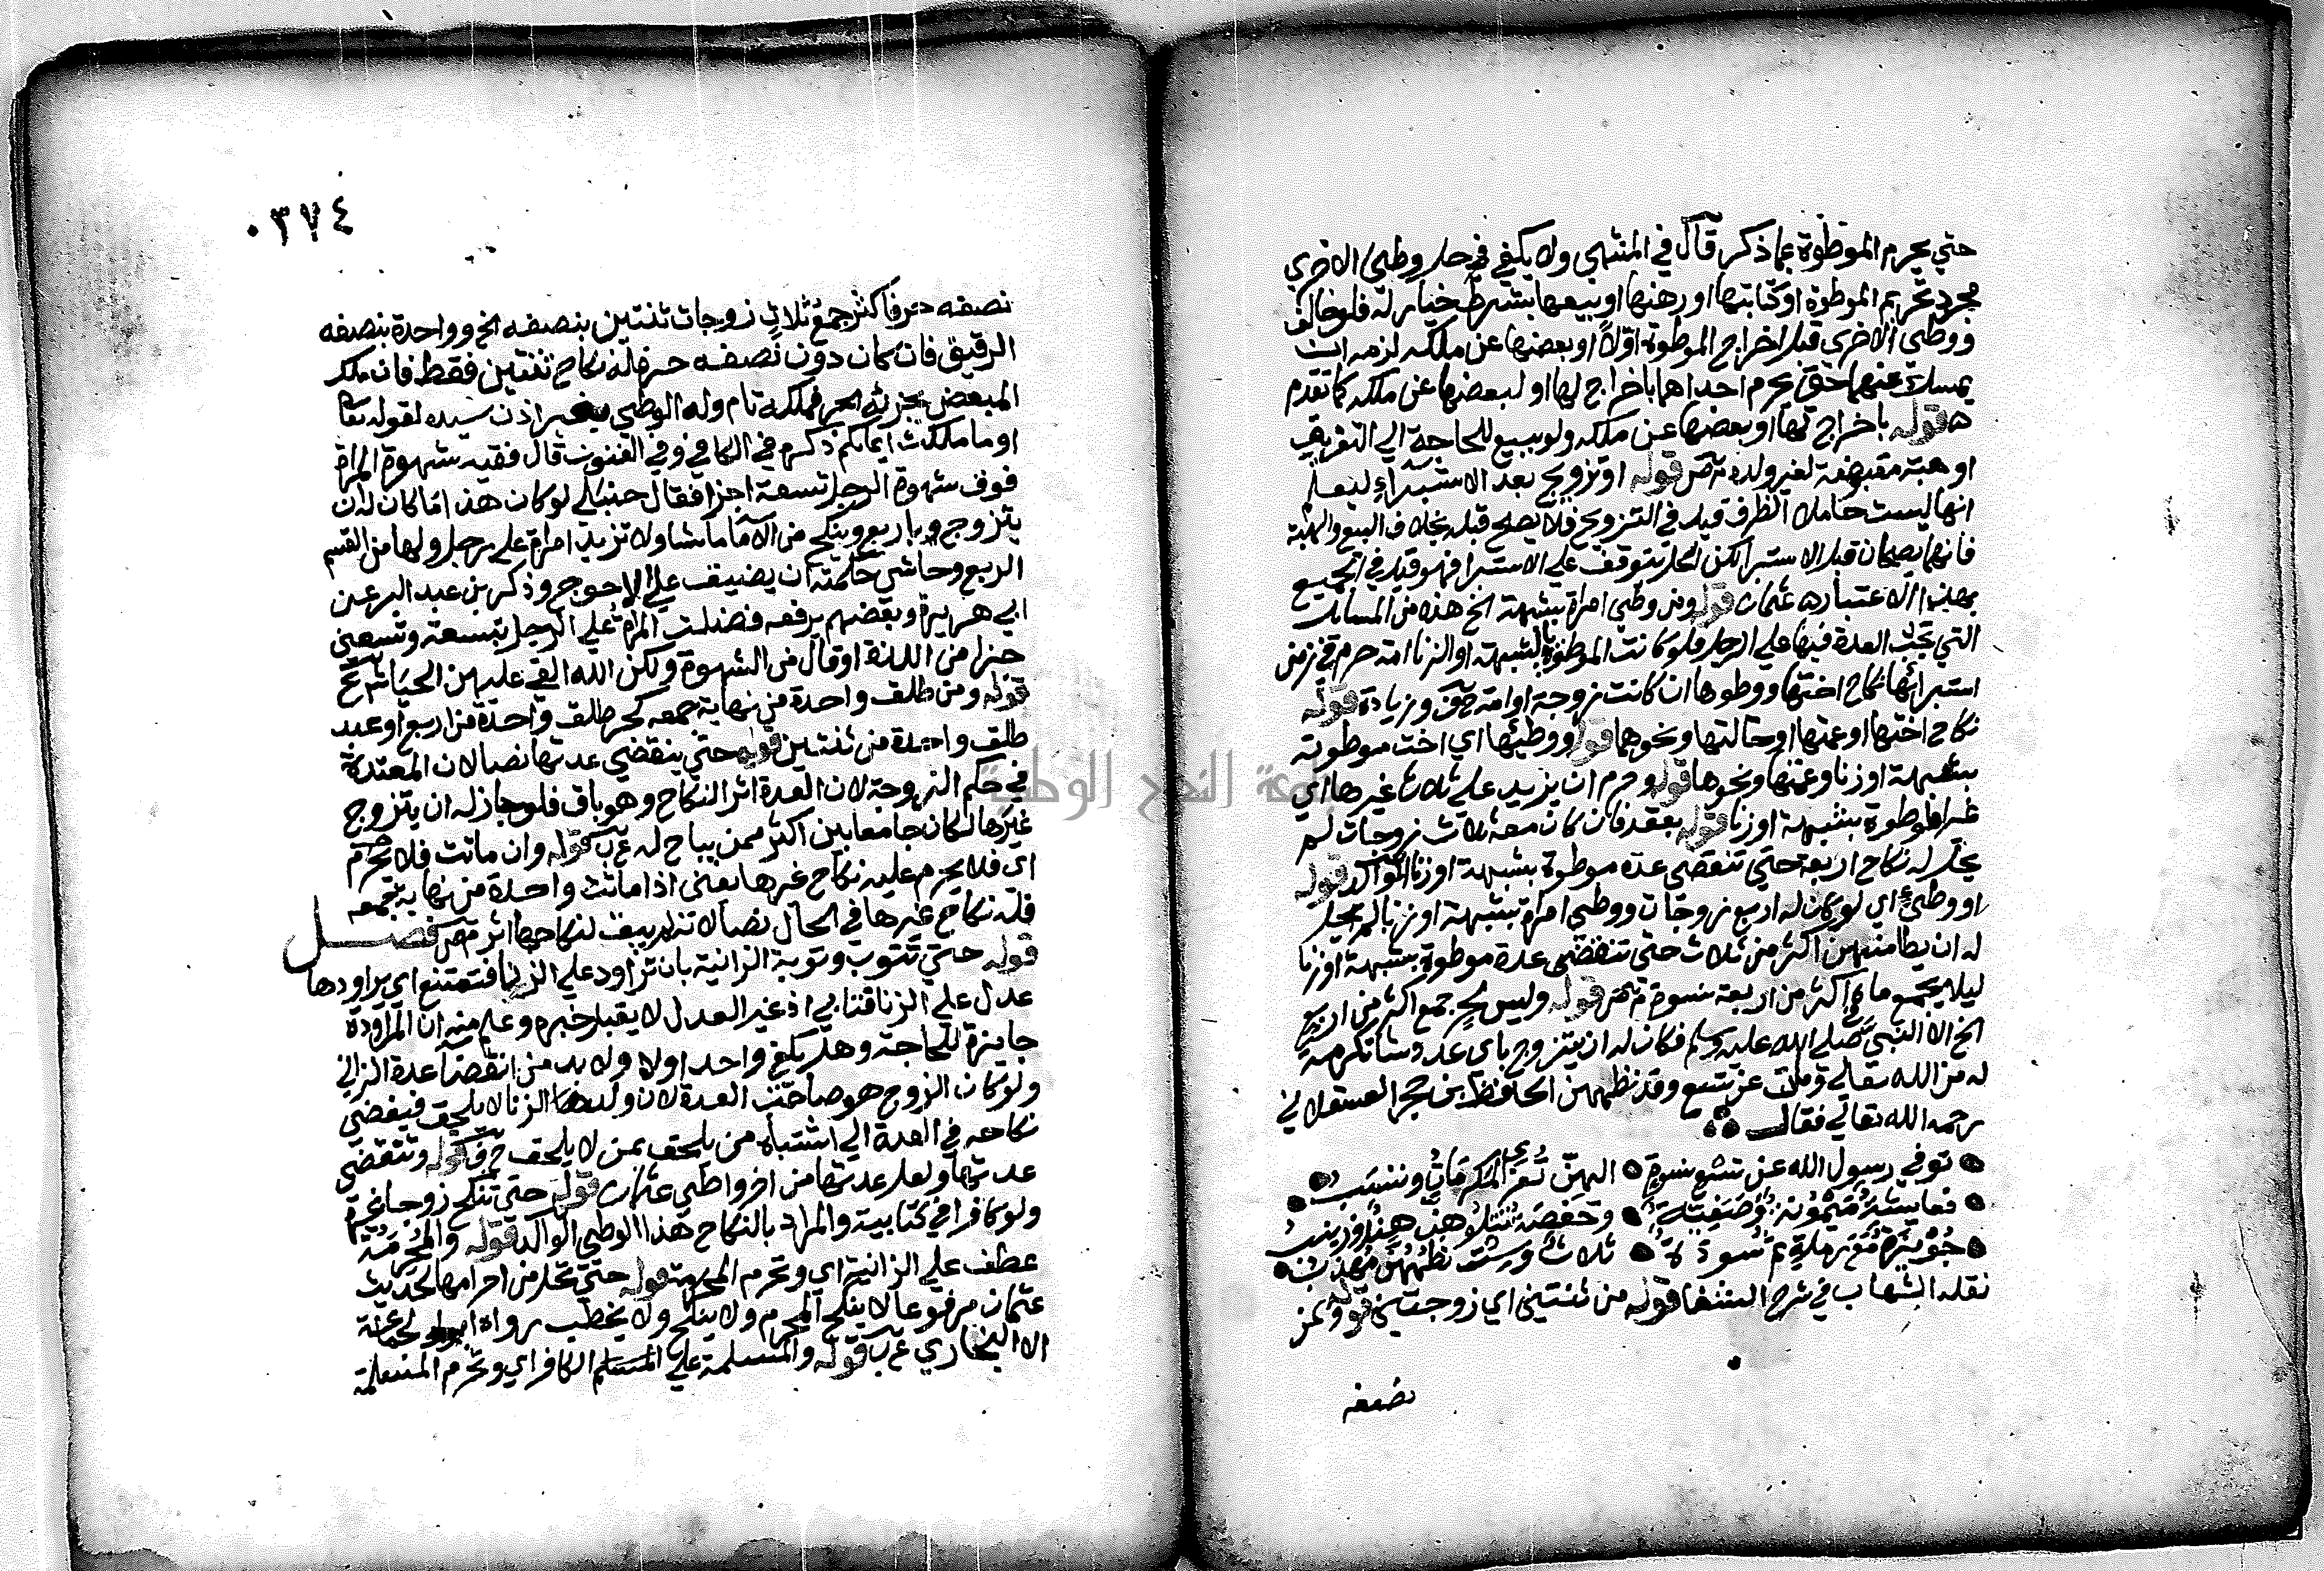 حتي يحرم الموطوة بما ذكر قال في المنتهي ولا يكفي في حل وطئ الاخري
مجرد تحريم الموطوة او كتابتها او رهنها او بيعها بشرط خيار له فلو خالف
ووطي الاخري قبل اخراج الموطوة اولا او بعضها عن ملكه لزمه ان
يمسك عنهما حتي يحرم احداهما باخراج لها او لبعضها عن ملكه كما تقدم
قوله باخراج لها او بعضها عن ملكه ولو ببيع للحاجة الي التفريق
او هبة مقبوضة لغير ولده م ص قوله او تزويج بعد الاستبراء ليعلم
انها ليست حاملا الظرف قيد في التزويج فلا يصح قبله بخلاف البيع والهبة
فانهما يصحان قبل الاستبرا لكن الحل يتوقف علي الاستبرا فهو قيد في الجميع
بهذا الاعتبار عثمان قوله ومن وطي امراة بشبهة الخ هذه من المسائل
التي تجب العدة فيها علي الرجل فلو كانت الموطوة بالشبهة او الزنا امة حرم في زمن
استبرائها نكاح اختها ووطوها ان كانت زوجة او امة وزيادة قوله
نكاح اختها او عمتها او خالتها ونحوهما قوله ووطئها اي اخت موطوته
بشبهة او زنا وعمتها ونحوها قوله وحرم ان يزيد علي ثلاث غيرها اي
غير الموطوة بشبهة او زنا قوله بعقد فان كان معه ثلاث زوجات لم
يحل له نكاح اربعة حتي تنقضي عدة موطوة بشبهة او زنا الوالد قوله
او وطئ اي لو كان له اربع زوجات ووطي امراة بشبهة او زنا لم يحل
له ان يطا منهن اكثر من ثلاث حتي تنقضي عدة موطوة بشبهة او زنا
ليلا يجمع ماوه اكثر من اربعة نسوة قوله وليس لحر جمع اكثر من اربع
الخ الا النبي صلي الله عليه وسلم فكان له ان يتزوج باي عدد شا تكرمة
له من الله تعالي ومات عن تسع وقد نظمهن الحافظ بن حجر العسقلاني
رحمه الله تعالي فقال
توفي رسول الله عن تسع نسوة اليهن تعزي المكرمات وتنسب
فعايشة ميمونة وصفية وحفصة تتلوهن هند وزينب
جويرية مع رملة ثم سودة ثلاث وست نظمهن مهذب
نقله الشهاب في شرح الشفا قوله من ثنتين اي زوجتين قوله ولمن
نصفه
٠٣٧٤
نصفه حر فاكثر جمع ثلاث زوجات ثنتين بنصفه الحر وواحدة بنصفه
الرقيق فان كان دون نصفه حر فله نكاح ثنتين فقط فان ملك
المبعض بجزئه الحر فملكه تام وله الوطي بغير اذن سيده لقوله تعالي
او ما ملكت ايمانكم ذكره في الكافي وفي الفنون قال فقيه شهوة المراة
فوق شهوة الرجل تسعة اجزا فقال حنبلي لو كان هذا ما كان له ان
يتزوج باربع وينكح من الاما ما شا ولا تزيد امراة علي رجل ولها من القسم
الربع وحاشي حكمته ان يضيق علي الاحوج وذكر بن عبد البر عن
ابي هريرة وبعضهم يرفعه فضلت المراة علي الرجل بتسعة وتسعين
جزا من اللذة او قال من الشهوة ولكن الله القي عليهن الحيا ش ح
قوله ومن طلق واحدة من نهاية جمعه كحر طلق واحدة من اربع او عبد
طلق واحدة من ثنتين قوله حتي ينقضي عدتها نصا لان المعتدة
في حكم الزوجة لان العدة اثر النكاح وهو باق فلو جاز له ان يتزوج
غيرها لكان جامعا بين اكثر ممن يباح له ع ب قوله وان ماتت فلا يحرم
اي فلا يحرم عليه نكاح غيرها يعني اذا ماتت واحدة من نهاية جمعه
فله نكاح غيرها في الحال نصا لانه لم يبق لنكاحها اثر م ص فصل
قوله حتي تتوب وتوبة الزانية بان تراود علي الزنا فتمتنع اي يراودها
عدل علي الزنا فتابي اذ غير العدل لا يقبل خبره وعلم منه ان المراودة
جايزة للحاجة وهل يكفي واحد اولا ولا بد من انقضا عدة الزاني
ولو كان الزوج هو صاحب العدة لان ولد الزنا لا يلحق فيفضي
نكاحه في العدة الي اشتباه من يلحق بمن لا يلحق ح ف قوله وتنقضي
عدتها ولعل عدتها من اخر وطي عثمان قوله حتي تنكح زوجا غيره
ولو كافرا في كتابية والمراد بالنكاح هذا الوطي الوالد قوله والمحرمة
عطف علي الزانية اي وتحرم المحرمة قوله حتي تحل من احرامها لحديث
عثمان مرفوعا لا ينكح المحرم ولا ينكح ولا يخطب رواه الجماعة
الا البخاري ع ب قوله والمسلمة علي المسلم الكافر اي وتحرم المسلمة